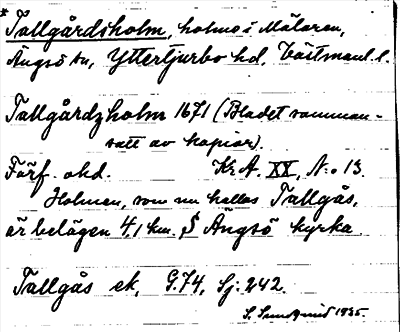 * Tallgårdsholm, holme i Mälaren,
Ängsö sn, Yttertjurbo hd, Västmanl. l.
Tallgårdzholm 1671 (Bladet samman-
satt av kopior).
Förf. okd. Kr. A. XX, N:o 13.
Holmen, som nu kallas Tallgås,
är belägen 4,1 km. S Ängsö kyrka.
Tallgås ek, G.74, Sj. 242.
S. Sundqvist 1935.